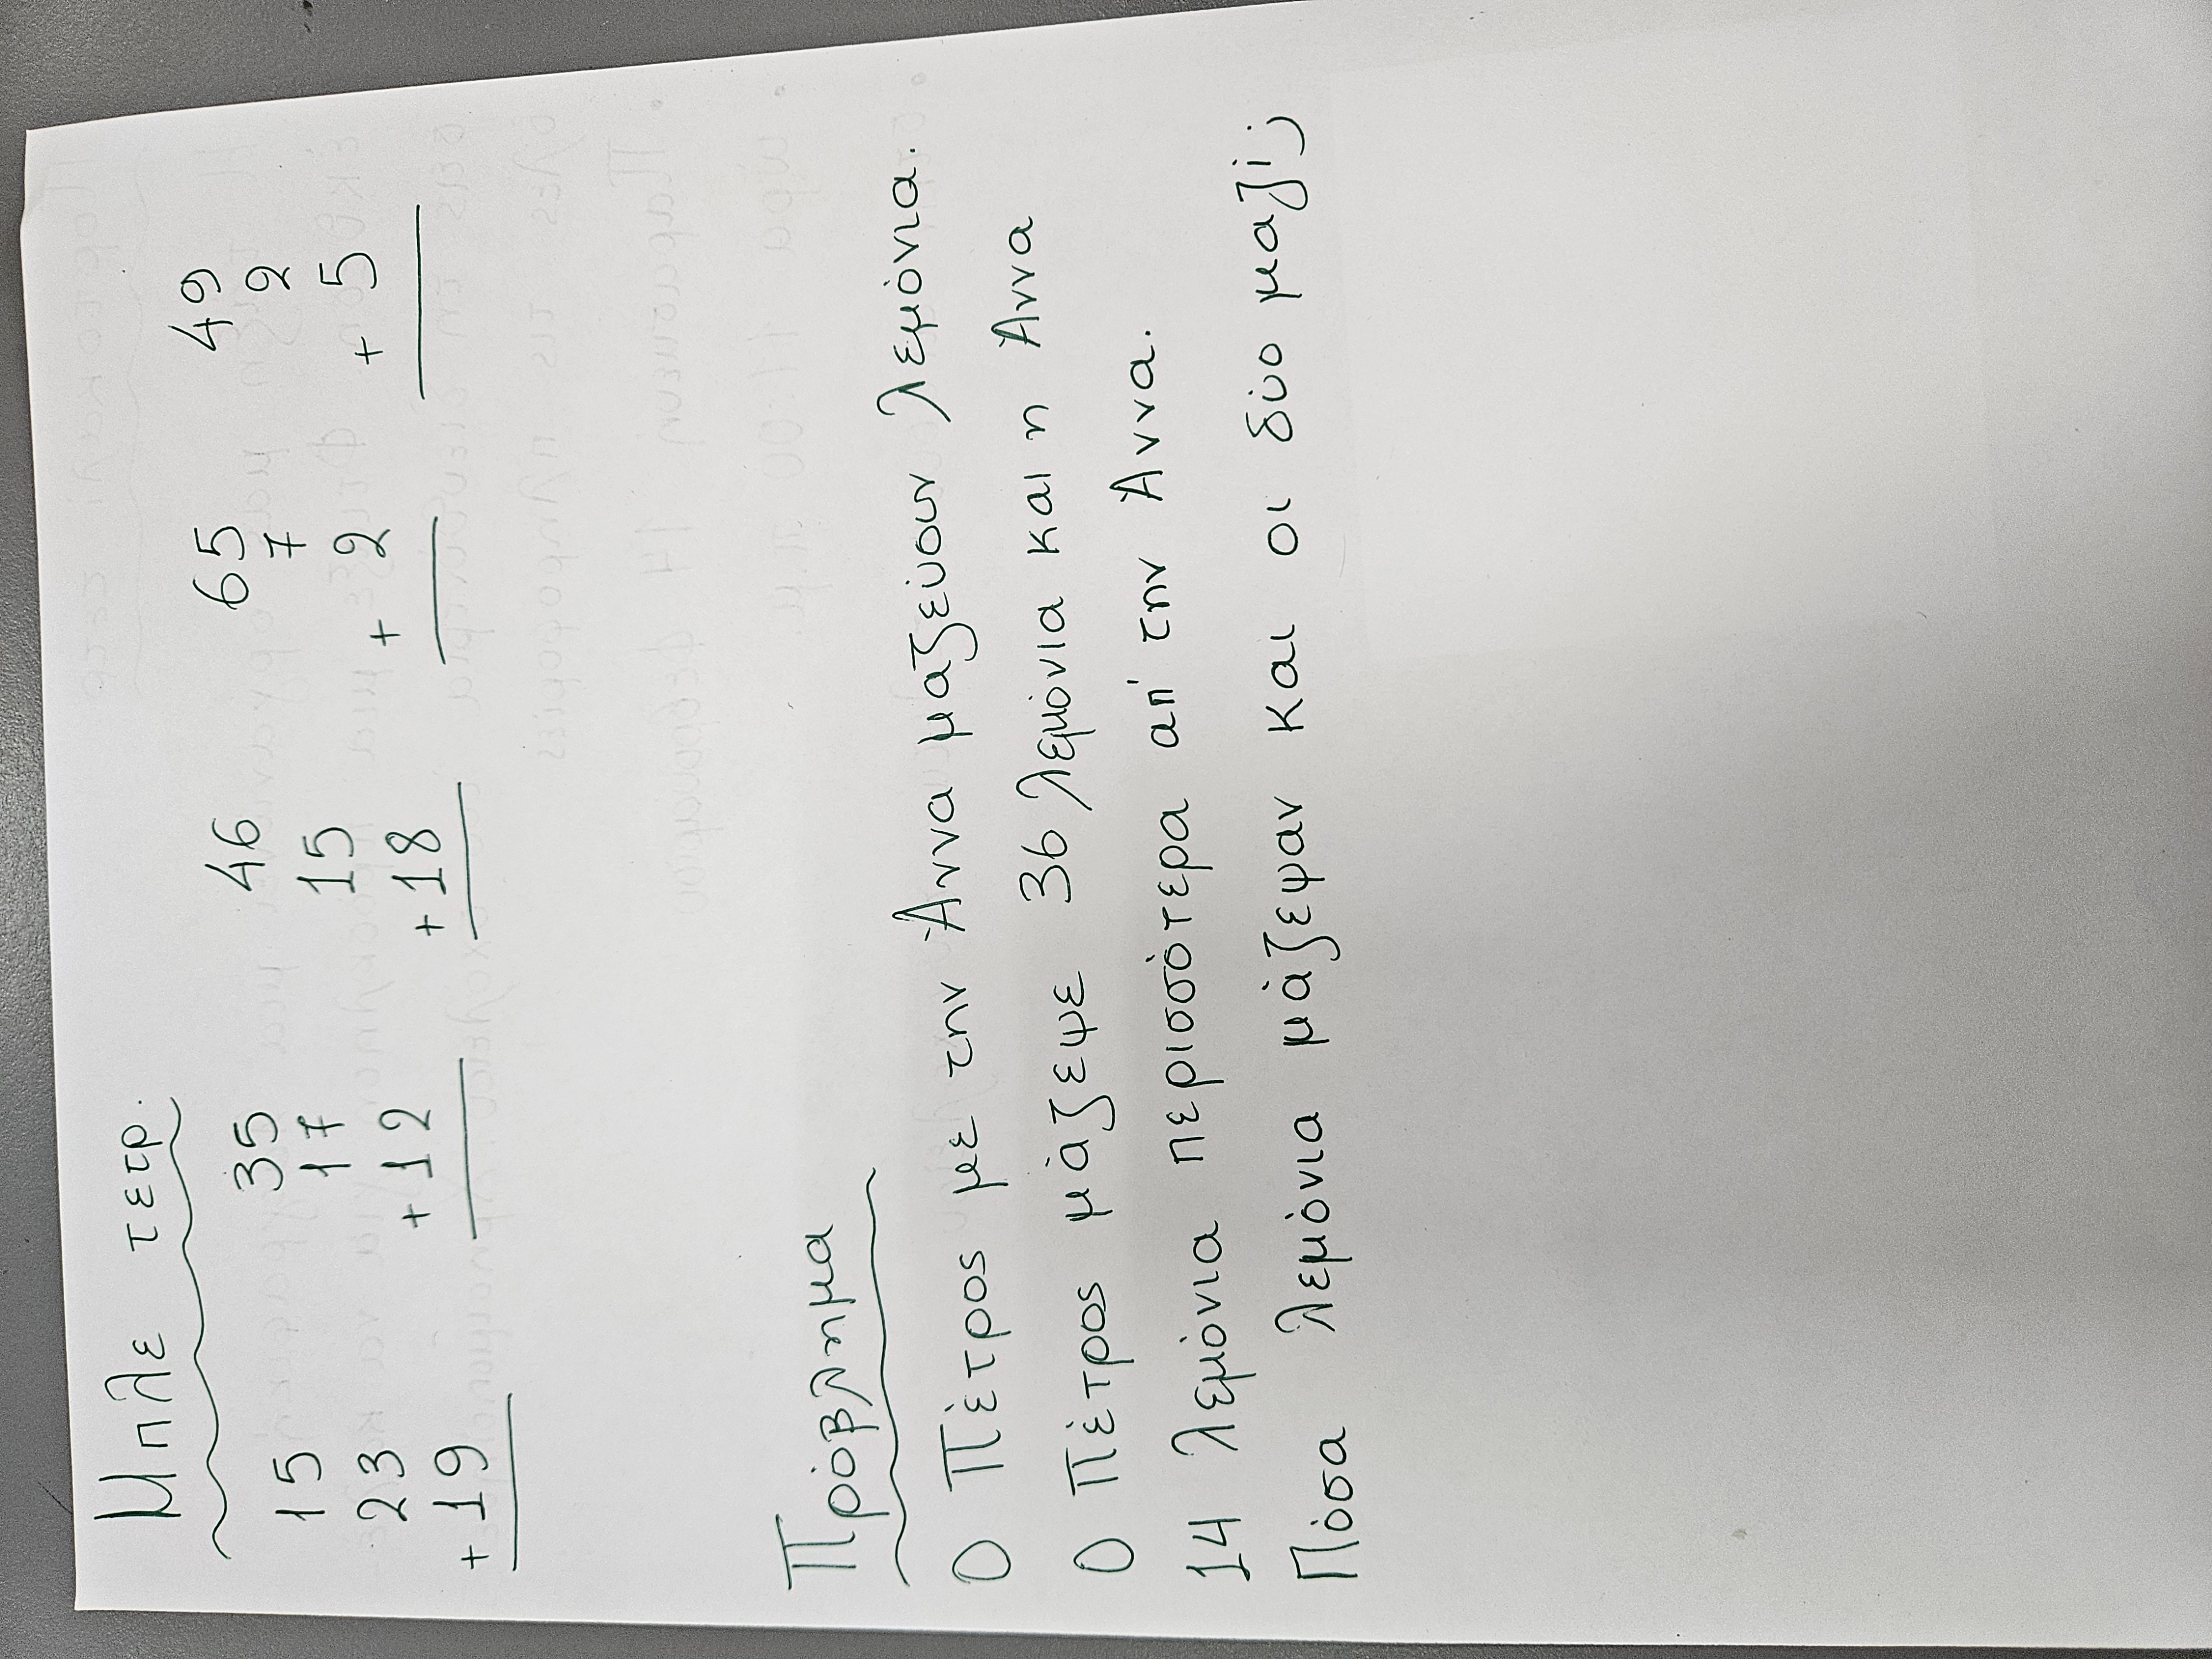 Μπλε τετρ.
15 35 46 65 49
23 17 15 7 2
+19 +12 +18 +2 +5
Πρόβλημα
Ο Πέτρος με την Άννα μαζεύουν λεμόνια.
Ο Πέτρος μάζεψε 36 λεμόνια και η Άννα
14 λεμόνια περισσότερα απ' την Άννα.
Πόσα λεμόνια μάζεψαν και οι δύο μαζί;